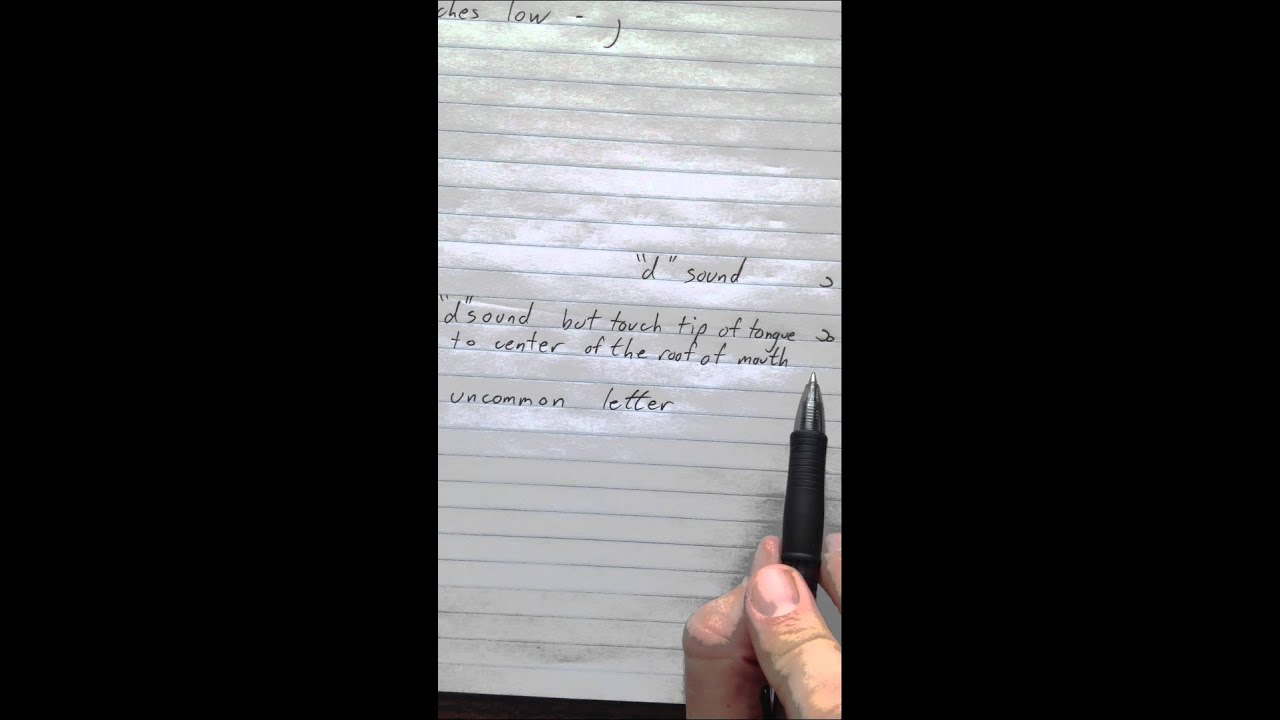 ches low - ر
"d" sound د
"d" sound but touch tip of tongue ډ
to center of the roof of mouth
uncommon letter